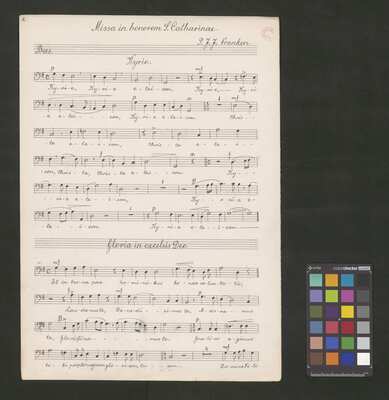 Missa in honorem S. Catharinae
P. J. J. Vranken
Bas.
Kyrie.
Ky-ri-e, Ky-ri-e e-lei-son, Ky-ri-e, Ky-ri
e e-lei-son, Ky-ri-e e-le-i-son. Chris-
te e-le-i-son, Chris-te e-lei-i-
son, Chris-te, Chris-te e-le-i-son. Ky-
ri-e e-le-i-son, Ky-ri-e
e-le-i-son, Ky-ri-e e-le-i-son.
Gloria in excelsis Deo
Et in ter-ra pax ho-mi-ni-bus bo-nae vo-lun-ta-tis,
Lau-da-mus te, Be-ne-di-ci-mus te, A-do-ra-mus
te, glo-ri-fi-ca-mus te. Gra-ti-as a-gimus
ti-bi propter magnam glo-ri-am tu-am. Do-mi-ne Fi-li